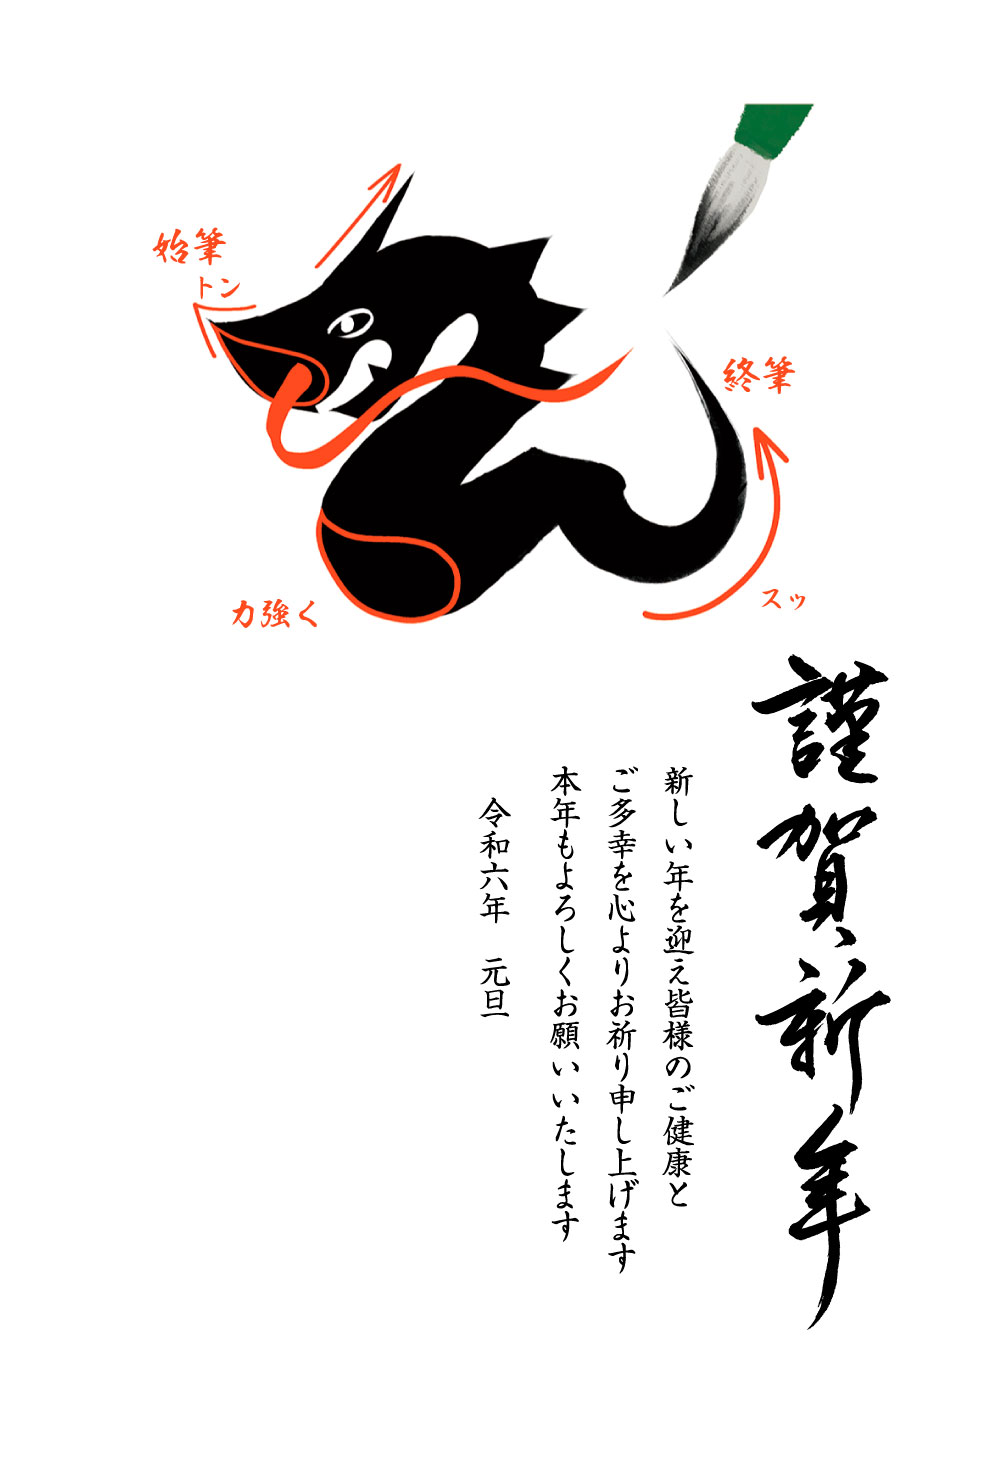 始筆
トン
終筆
スッ
力強く
謹賀新年
新しい年を迎え皆様のご健康と
ご多幸を心よりお祈り申し上げます
本年もよろしくお願いいたします
令和六年　元旦